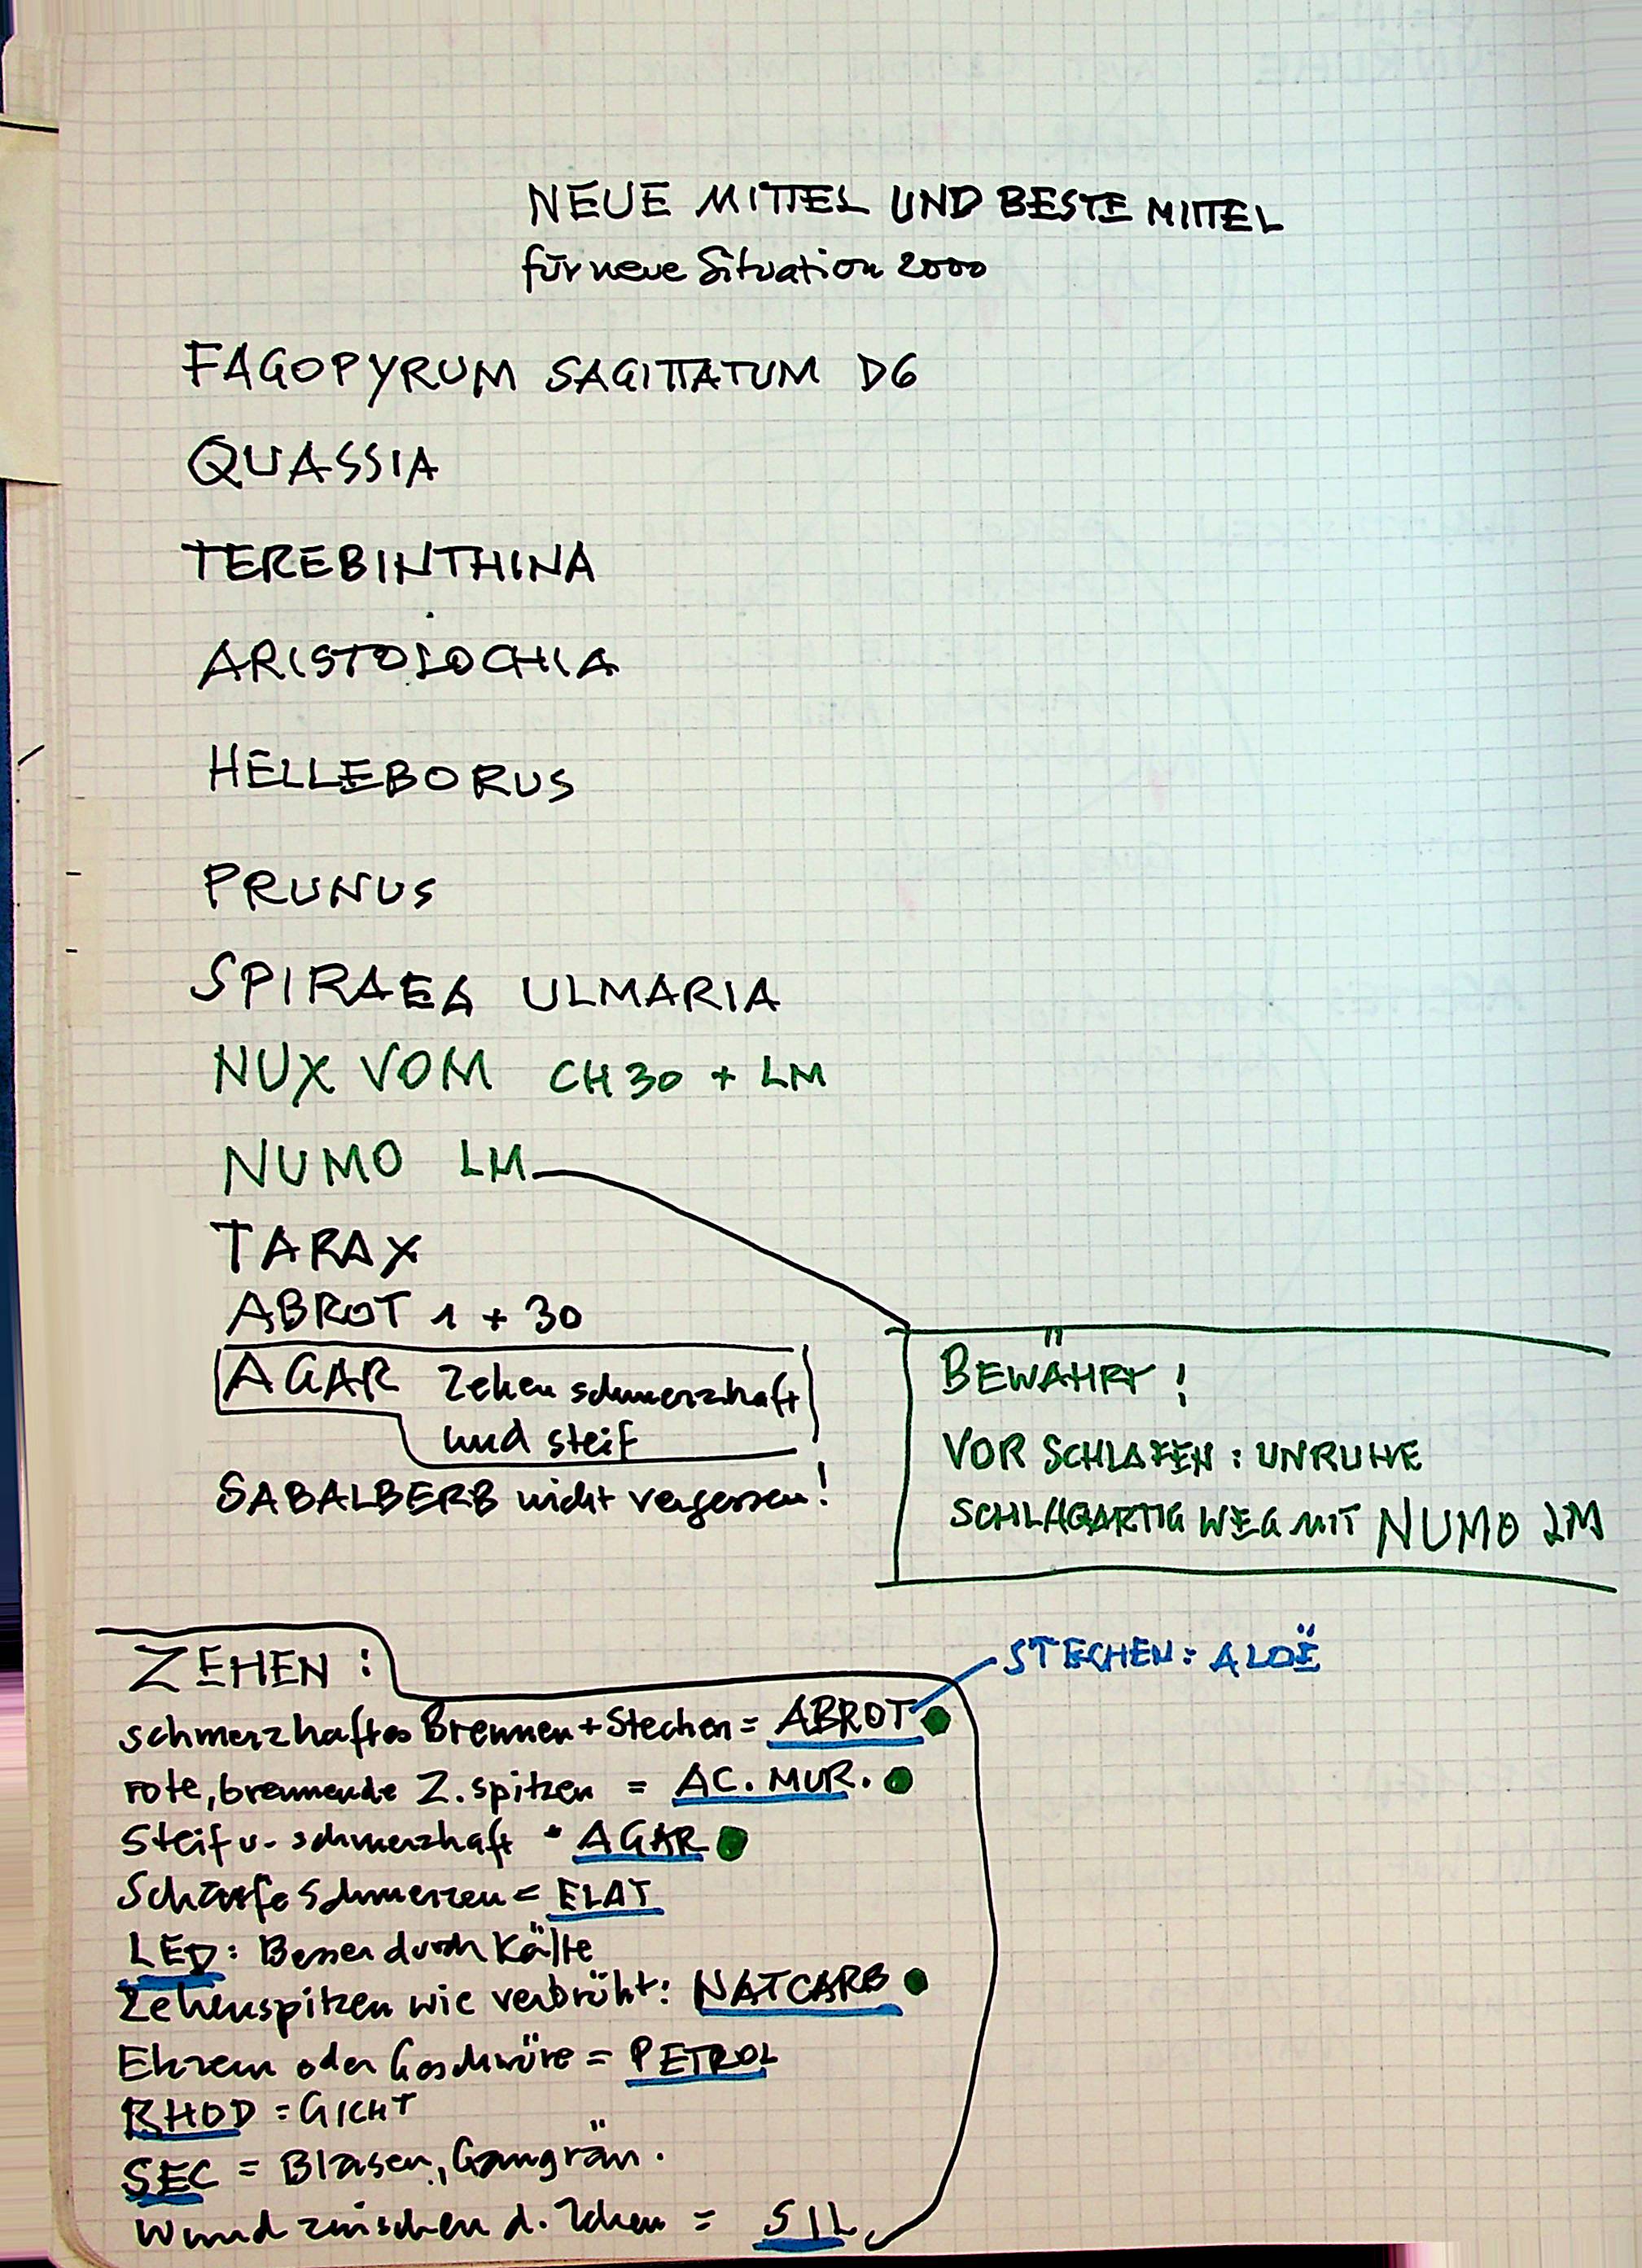 NEUE MITTEL UND BESTE MITTEL
für neue Situation 2000
FAGOPYRUM SAGITTATUM D6
QUASSIA
TEREBINTHINA
ARISTOLOCHIA
HELLEBORUS
PRUNUS
SPIRAEA ULMARIA
NUX VOM CH 30 + LM
NUMO LM
TARAX
ABROT 1 + 30
AGAR Zehen schmerzhaft
und steif
SABALBERB nicht vergessen!
BEWÄHRT!
VOR SCHLAFEN: UNRUHE
SCHLAGARTIG WEG MIT NUMO LM
ZEHEN:
STECHEN: ALOË
schmerzhaftes Brennen + Stechen = ABROT
rote, brennende Z.spitzen = AC. MUR.
Steif u. schmerzhaft = AGAR
Scharfe Schmerzen = ELAT
LED: Besser durch Kälte
Zehenspitzen wie verbrüht: NATCARB
Ekzem oder Geschwüre = PETROL
RHOD = GICHT
SEC = Blasen, Gangrän.
Wund zwischen d. Zehen = SIL